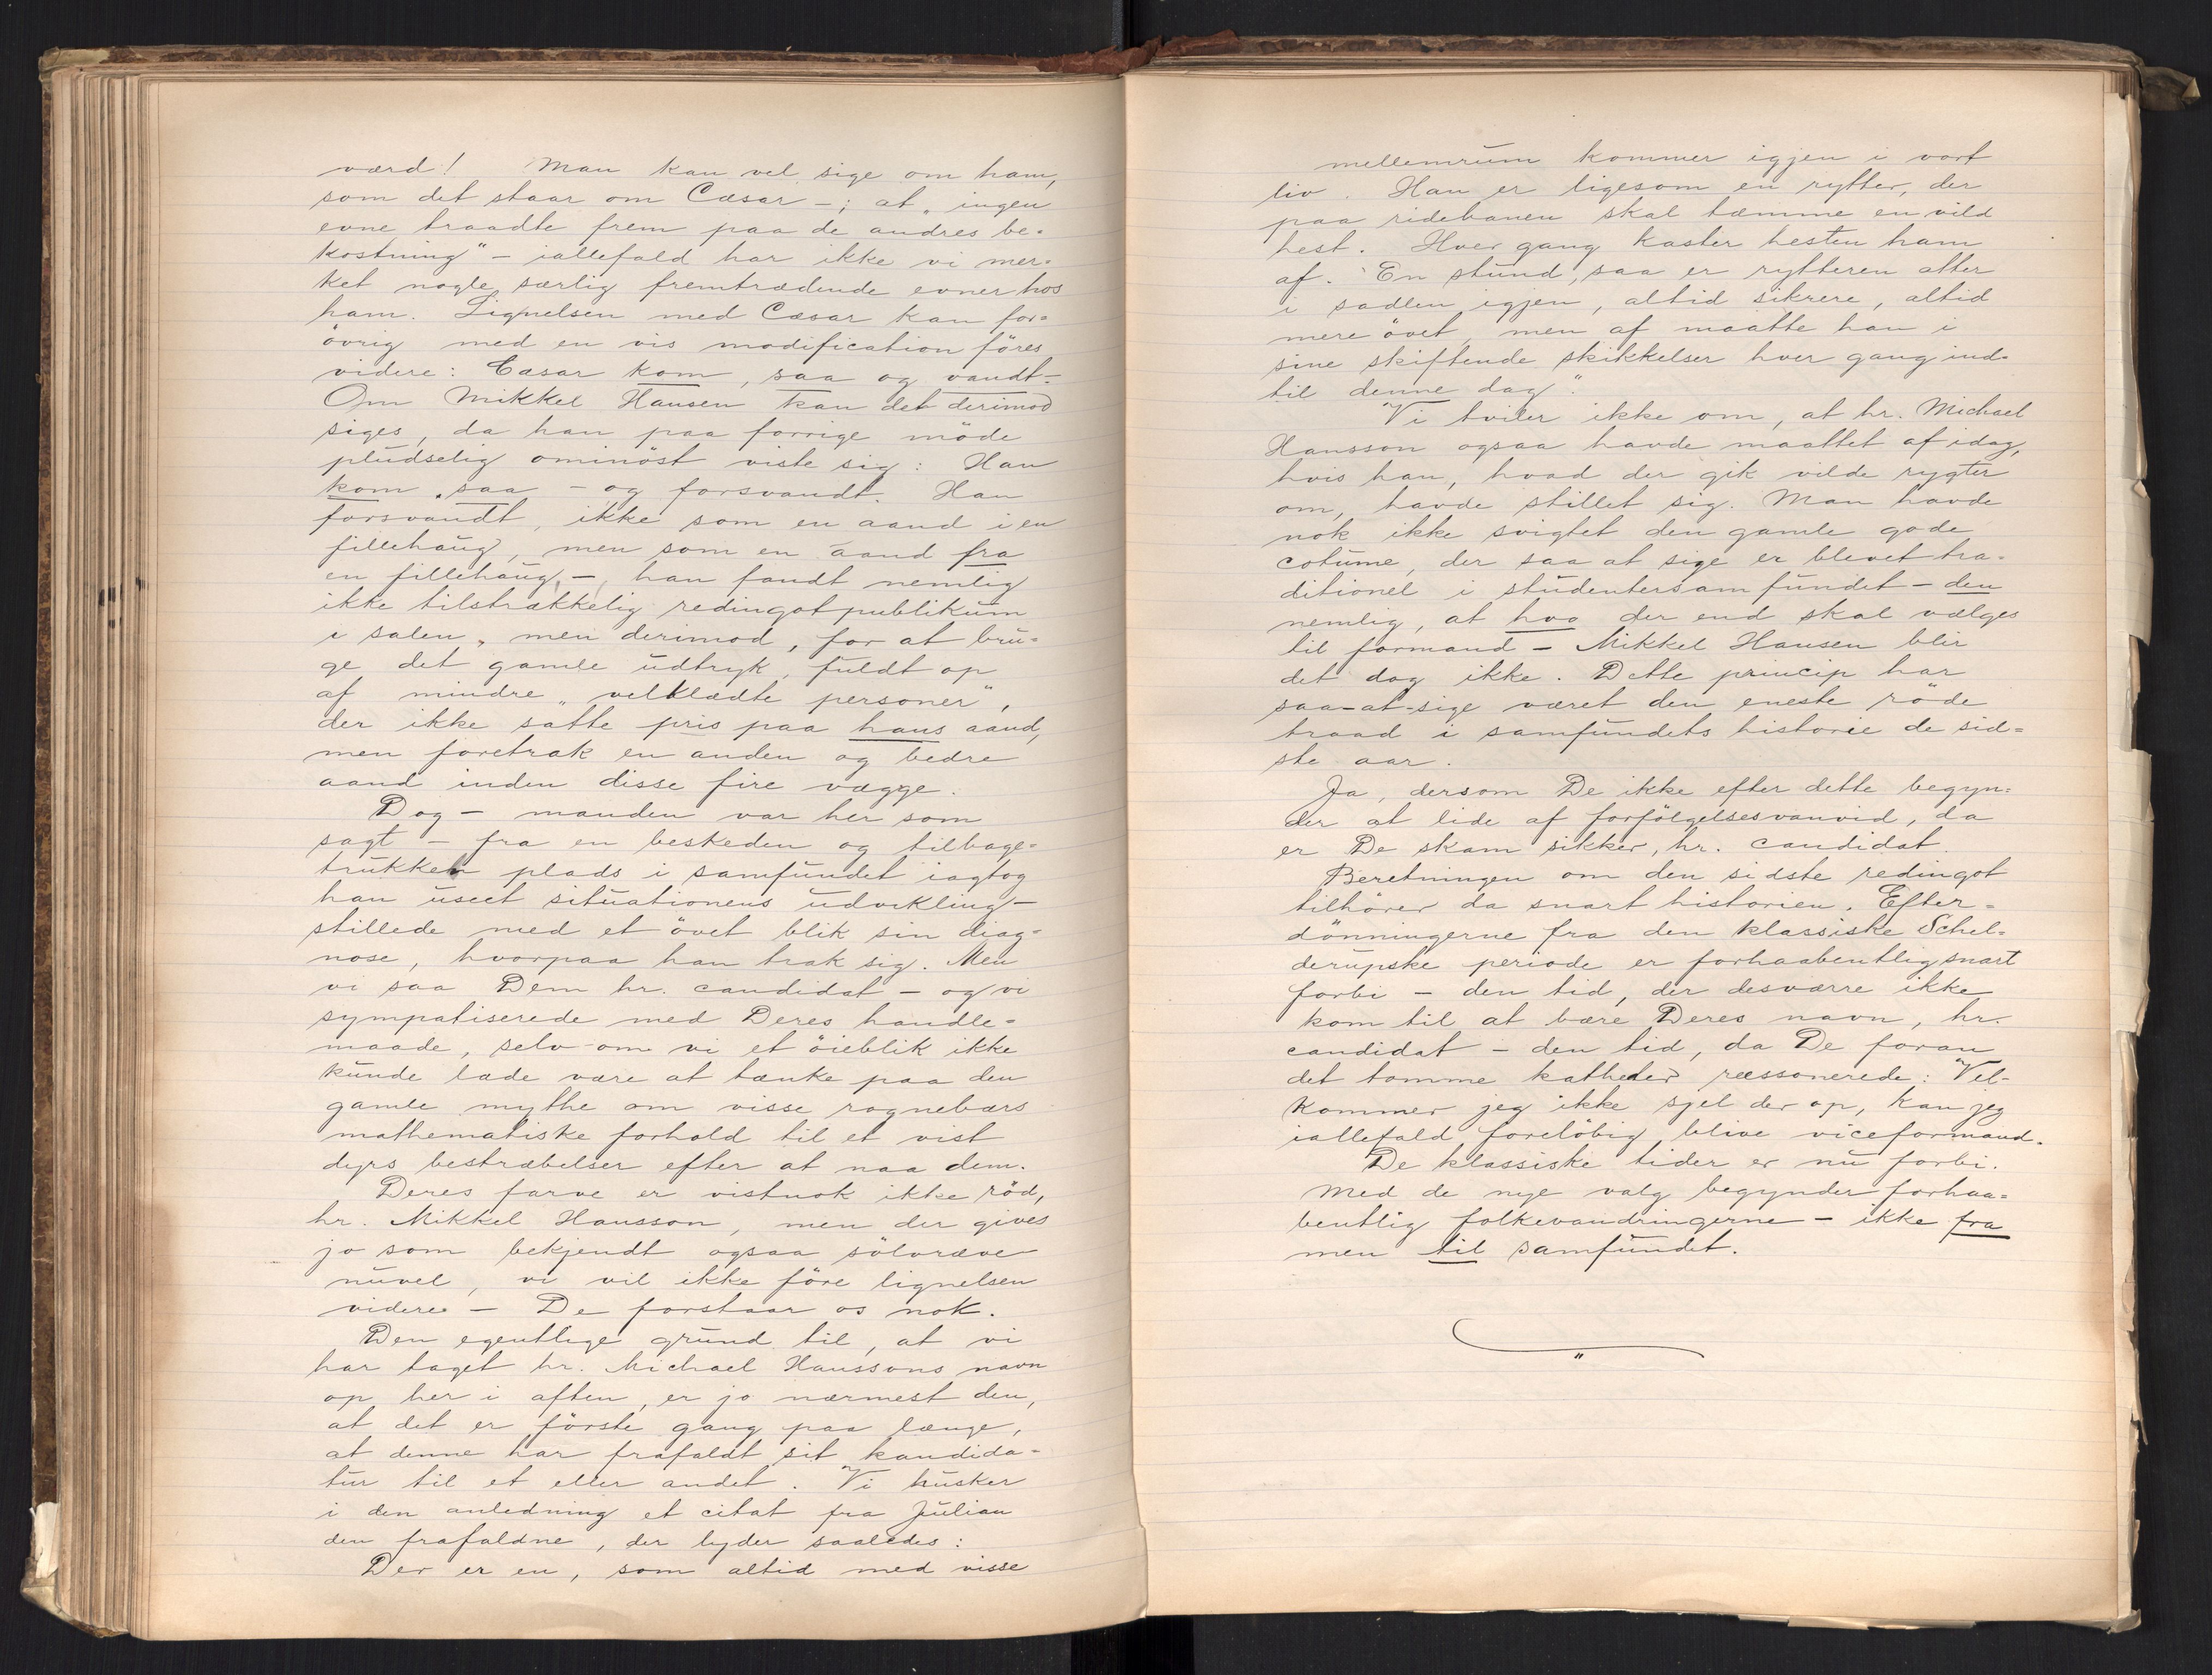 værd! Man kan vel sige om ham,
som det staar om Cæsar -; at „ingen
evne traadte frem paa de andres be-
kostning" - iallefald har ikke vi mer-
ket nogle særlig fremtrædende evner hos
ham. Lignelsen med Cæsar kan for-
övrig med en vis modification föres
videre: Cæsar kom, saa og vandt -
Om Mikkel Hansen kan det derimod
siges, da han paa forrige möde
pludselig ominöst viste sig: Han
kom, saa - og forsvandt. Han
forsvandt, ikke som en aand i en
fillehaug, men som en aand fra
en fillehaug, - han fandt nemlig
ikke tilstrækkelig redingotpublikum
i salen, men derimod, for at bru-
ge det gamle udtryk, fuldt op
af mindre „velklædte personer",
der ikke satte pris paa hans aand,
men foretrak en anden og bedre
aand inden disse fire vægge.
Dog - manden var her som
sagt - fra en beskeden og tilbage-
trukken plads i samfundet iagtog
han useet situationens udvikling -
stillede med et övet blik sin diag-
nose, hvorpaa han trak sig. Men
vi saa Dem hr. candidat - og vi
sympatiserede med Deres handle-
maade, selv om vi et öieblik ikke
kunde lade være at tænke paa den
gamle mythe om visse rognebærs
mathematiske forhold til et vist
dyrs bestræbelser efter at naa dem.
Deres farve er vistnok ikke röd,
hr. Mikkel Hansson, men der gives
jo som bekjendt ogsaa sölvræve
nuvel, vi vil ikke före lignelsen
videre - De forstaar os nok.
Den egentlige grund til, at vi
har taget hr. Michael Hanssons navn
op her i aften, er jo nærmest den,
at det er förste gang paa længe,
at denne har frafaldt sit kandida-
tur til et eller andet. Vi husker
i den anledning et citat fra Julian
den frafaldne, der lyder saaledes:
Der er en, som altid med visse
mellemrum kommer igjen i vort
liv. Han er ligesom en rytter, der
paa ridebanen skal tæmme en vild
hest. Hver gang kaster hesten ham
af. En stund, saa er rytteren atter
i sadlen igjen, altid sikrere, altid
mere övet, men af maatte han i
sine skiftende skikkelser hver gang ind-
til denne dag".
Vi tviler ikke om, at hr. Michael
Hansson ogsaa havde maattet af idag,
hvis han, hvad der gik vilde rygter
om, havde stillet sig. Man havde
nok ikke svigtet den gamle gode
cotume, der saa at sige er blevet tra-
ditionel i studentersamfundet - den
nemlig, at hvo der end skal vælges
til formand - Mikkel Hansen blir
det dog ikke. Dette princip har
saa-at-sige været den eneste röde
traad i samfundets historie de sid-
ste aar.
Ja, dersom De ikke efter dette begyn-
der at lide af forfölgelsesvanvid, da
er De skam sikker, hr. candidat.
Beretningen om den sidste redingot
tilhörer da snart historien. Efter-
dönningerne fra den klassiske Schel-
derupske periode er forhaabentlig snart
forbi - den tid, der desværre ikke
kom til at bære Deres navn, hr.
candidat - den tid, da De foran
det tomme katheder ræssonerede: Vel-
kommer jeg ikke sjel der op, kan jeg
iallefald foreløbig blive viceformand.
De klassiske tider er nu forbi.
Med de nye valg begynder forhaa-
bentlig folkevandringerne - ikke fra
men til samfundet.